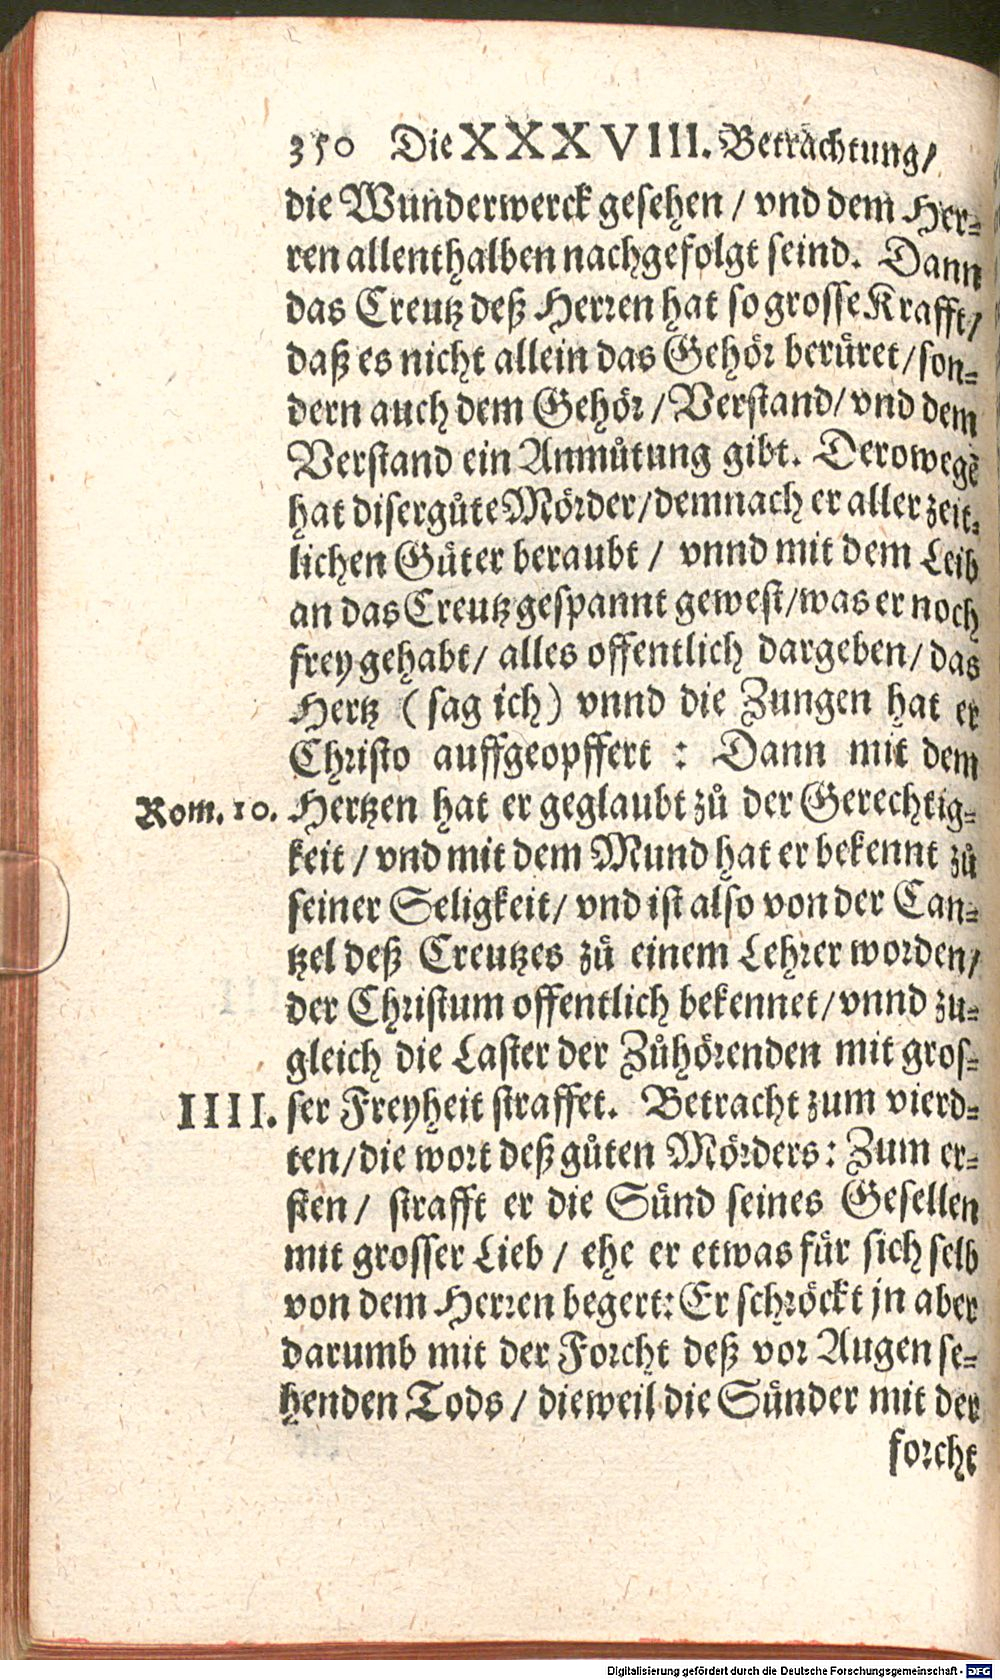 350 Die XXXVIII. Betrachtung/
die Wunderwerck gesehen / vnd dem Her-
ren allenthalben nachgefolgt seind. Dann
das Creutz deß Herren hat so grosse Krafft/
daß es nicht allein das Gehör berüret/son-
dern auch dem Gehör / Verstand/ vnd dem
Verstand ein Anmůtung gibt. Derowegē
hat diser gůte Mörder/demnach er aller zeit-
lichen Güter beraubt / vnnd mit dem Leib
an das Creutz gespannt gewest/was er noch
frey gehabt/ alles offentlich dargeben/ das
Hertz ( sag ich) vnnd die Zungen hat er
Christo auffgeopffert : Dann mit dem
Rom. 10. Hertzen hat er geglaubt zů der Gerechtig-
keit / vnd mit dem Mund hat er bekennt zů
seiner Seligkeit/ vnd ist also von der Can-
tzel deß Creutzes zů einem Lehrer worden/
der Christum offentlich bekennet/vnnd zu-
gleich die Laster der Zůhörenden mit gros-
IIII. ser Freyheit straffet. Betracht zum vierd-
ten/die wort deß gůten Mörders: Zum er-
sten / strafft er die Sünd seines Gesellen
mit grosser Lieb / ehe er etwas für sich selb
von dem Herren begert: Er schröckt jn aber
darumb mit der Forcht deß vor Augen se-
henden Tods / dieweil die Sünder mit der
forcht
Digitalisierung gefördert durch die Deutsche Forschungsgemeinschaft - DFG